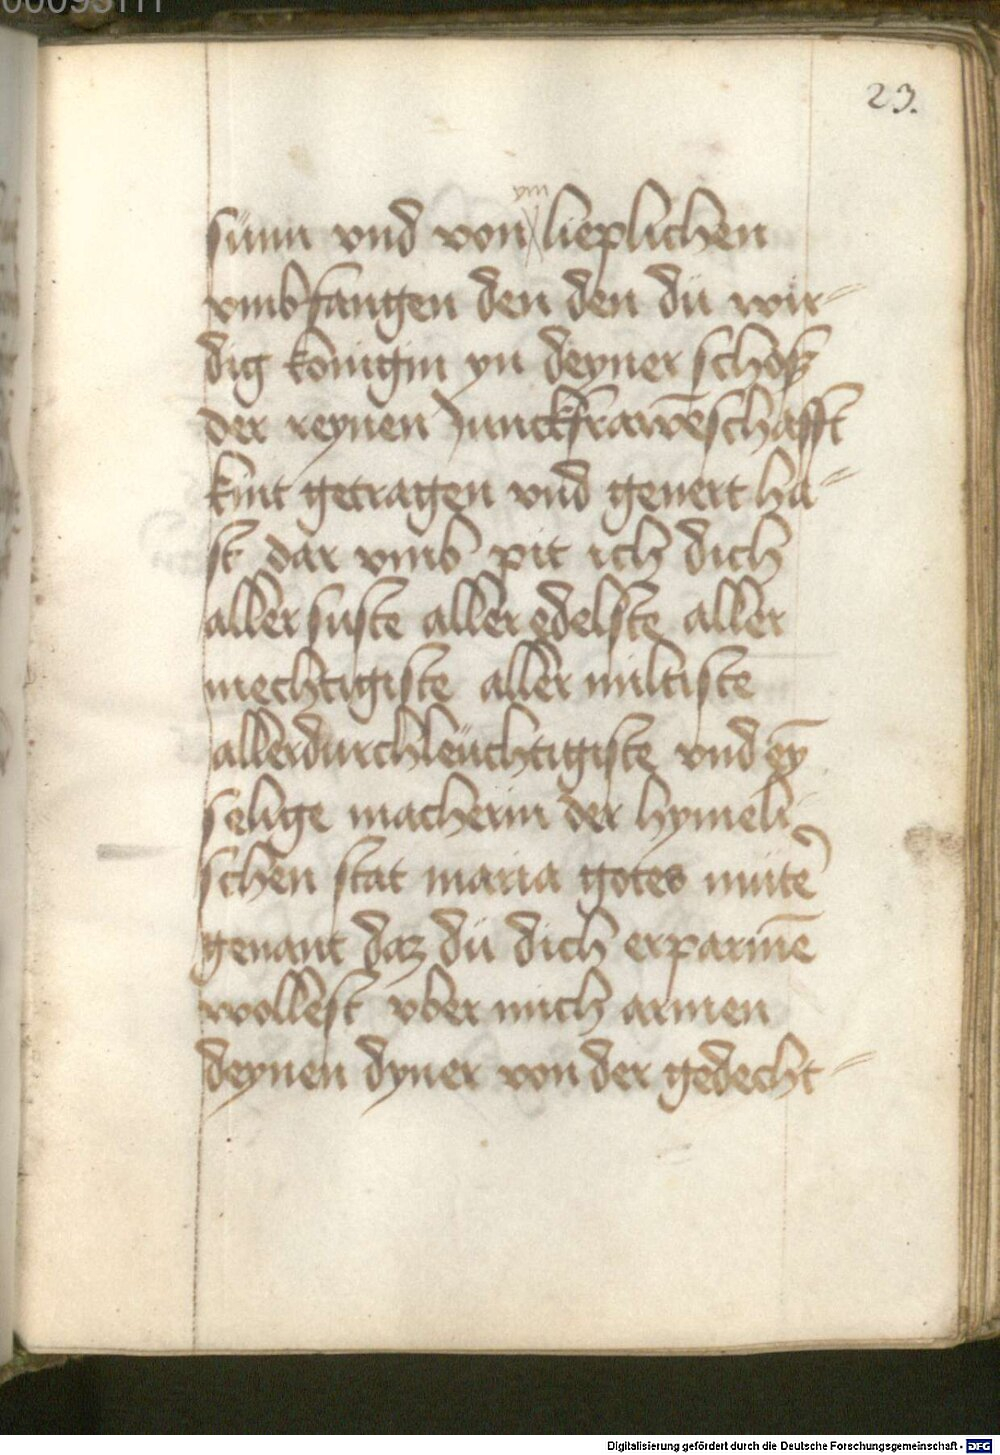 23.
sünn vnd von ym lieplichen
vmbfangen den den dü wir=
dig konigin yn deyner schoß
der reynen Junckfrawēschafft
kint getragen vnd genert ha=
st dar vmb pit ich dich
aller suste aller edelste aller
mechtigiste aller miltiste
allerdurchleuchtigiste vnd eȳ
selige macherin der hymeli
schen stat maria gotes mute
genant daz dü dich erparmē
wollest vber mich armen
deynen dyner von der gedecht=
Digitalisierung gefördert durch die Deutsche Forschungsgemeinschaft - DFG